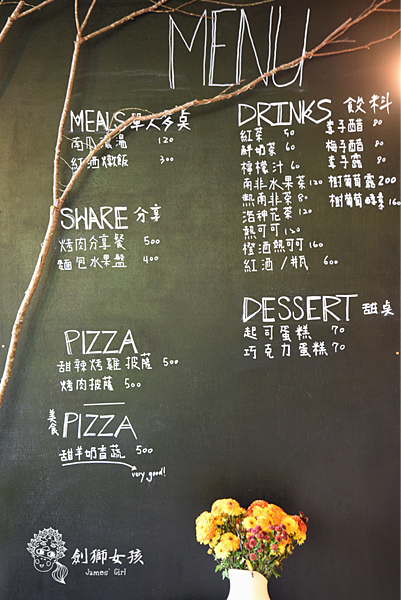 MENU
MEALS 單人多桌
南瓜濃湯 120
紅酒燉飯 300
SHARE 分享
烤肉分享餐 500
麵包水果盤 400
PIZZA
甜辣烤雞披薩 500
烤肉披薩 500
美食 PIZZA
甜羊奶杳蔬 500
very good!
DRINKS 飲料
紅茶 50
鮮奶茶 60
檸檬汁 60
南非水果茶 120
熱南非茶 80
洛神花茶 120
熱可可 120
橙酒熱可可 160
紅酒/瓶 600
李子醋 80
梅子醋 80
李子露 80
樹葡萄露 200
樹葡萄 160
DESSERT 甜桌
起司蛋糕 70
巧克力蛋糕 70
劍獅女孩
James' Girl